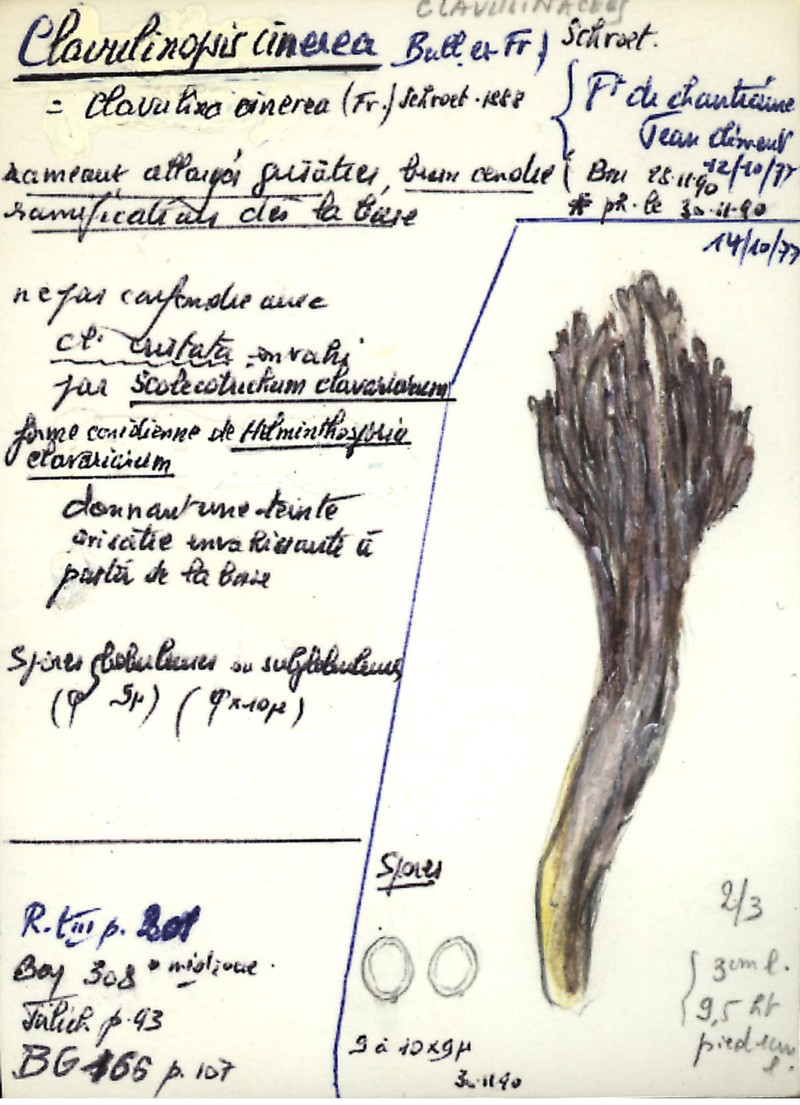 CLAVULINACEES
Clavulinopsis cinerea Bull. ex Fr) Schroet.
= Clavulina cinerea (Fr.) Schroet. 1888
Ft de chantraine
Jean clément
12/10/77
Bou 28-11-90
* ph. le 30-11-90
rameaux allongés grisâtres, brun cendré
ramifications dès la base
14/10/77
ne pas confondre avec
cl. cristata envahi
par Scolecotrichum clavariarum
forme conidienne de Helminthosporia
clavariarum
donnant une teinte
grisâtre envahissante à
partir de la base
Spores globuleuses ou subglobuleuses
(φ 9µ) (9×10µ)
Spores
R. t III p. 201
Boy 308 * médiocre.
Jülich p. 93
BG 166 p. 107
9 à 10×9µ
30-11-90
2/3
3cm l.
9,5 ht
pied 1cm
l.